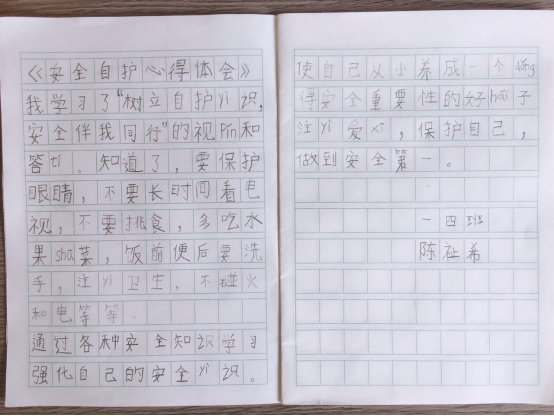 《安全自护心得体会》
我学习了“树立自护yi识,
安全伴我同行”的视pin和
答tí。知道了,要保护
眼睛,不要长时间看电
视,不要挑食,多吃水
果shū菜,饭前便后要洗
手,注yì卫生,不碰火
和电等等。
通过各种安全知识学习
强化自己的安全yì识。
使自己从小养成一个dǒng
得安全重要性的好hái子
注yì爱xī,保护自己,
做到安全第一。
一四班
陈祉希